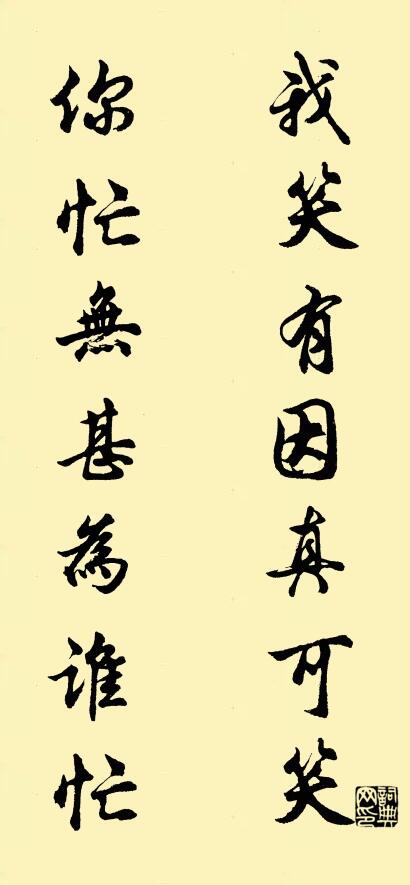 我笑有因真可笑
你忙無甚為誰忙
詞典網印